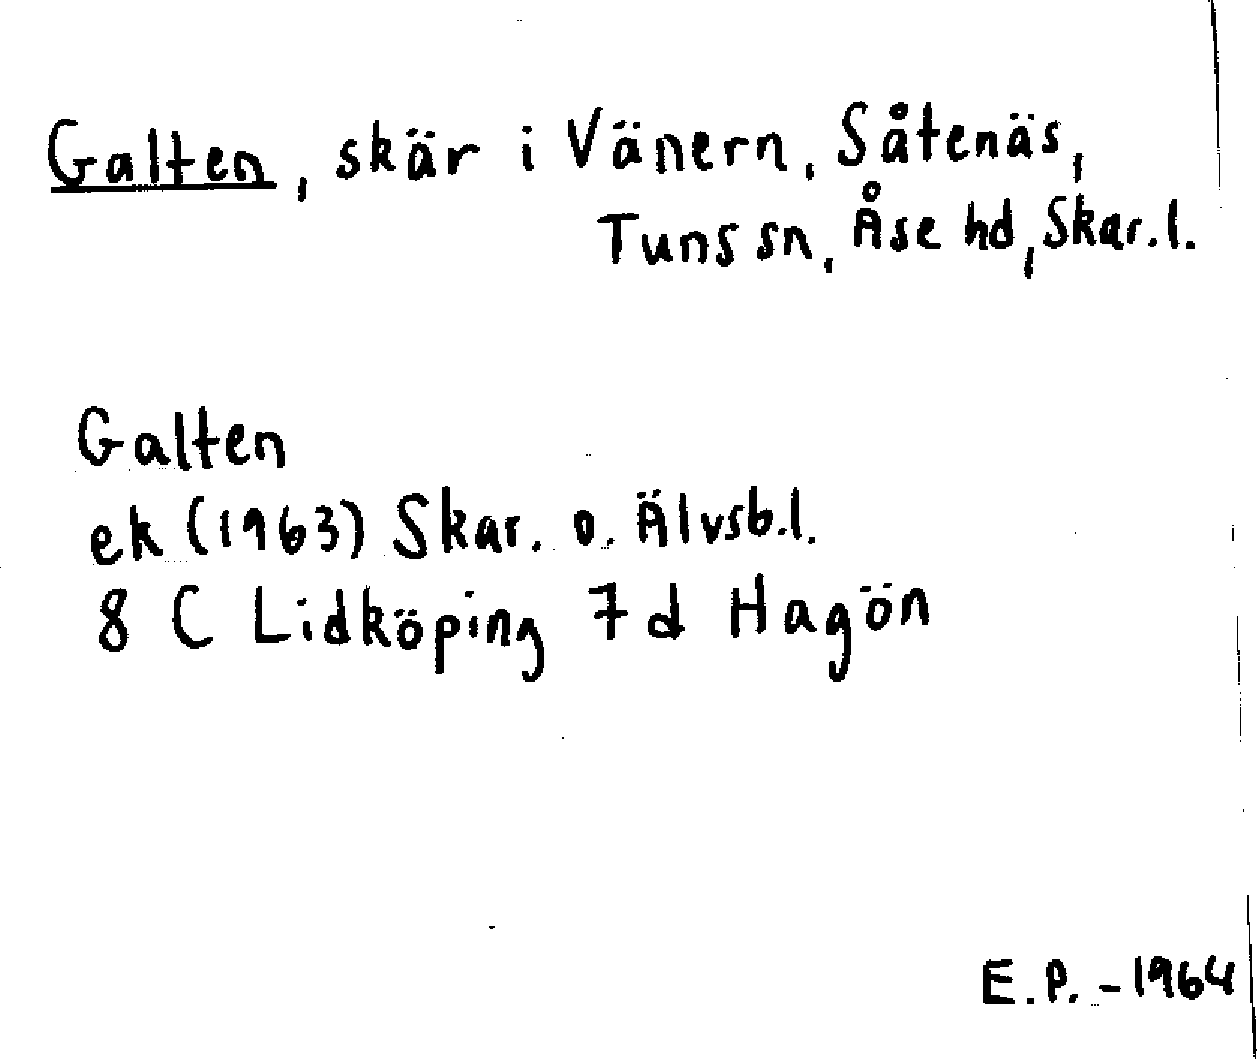 Galten, skär i Vänern, Såtenäs,
Tuns sn, Åse hd, Skar.l.
Galten
ek (1963) Skar. o. Älvsb.l.
8 C Lidköping 7 d Hagön
E.P. - 1964